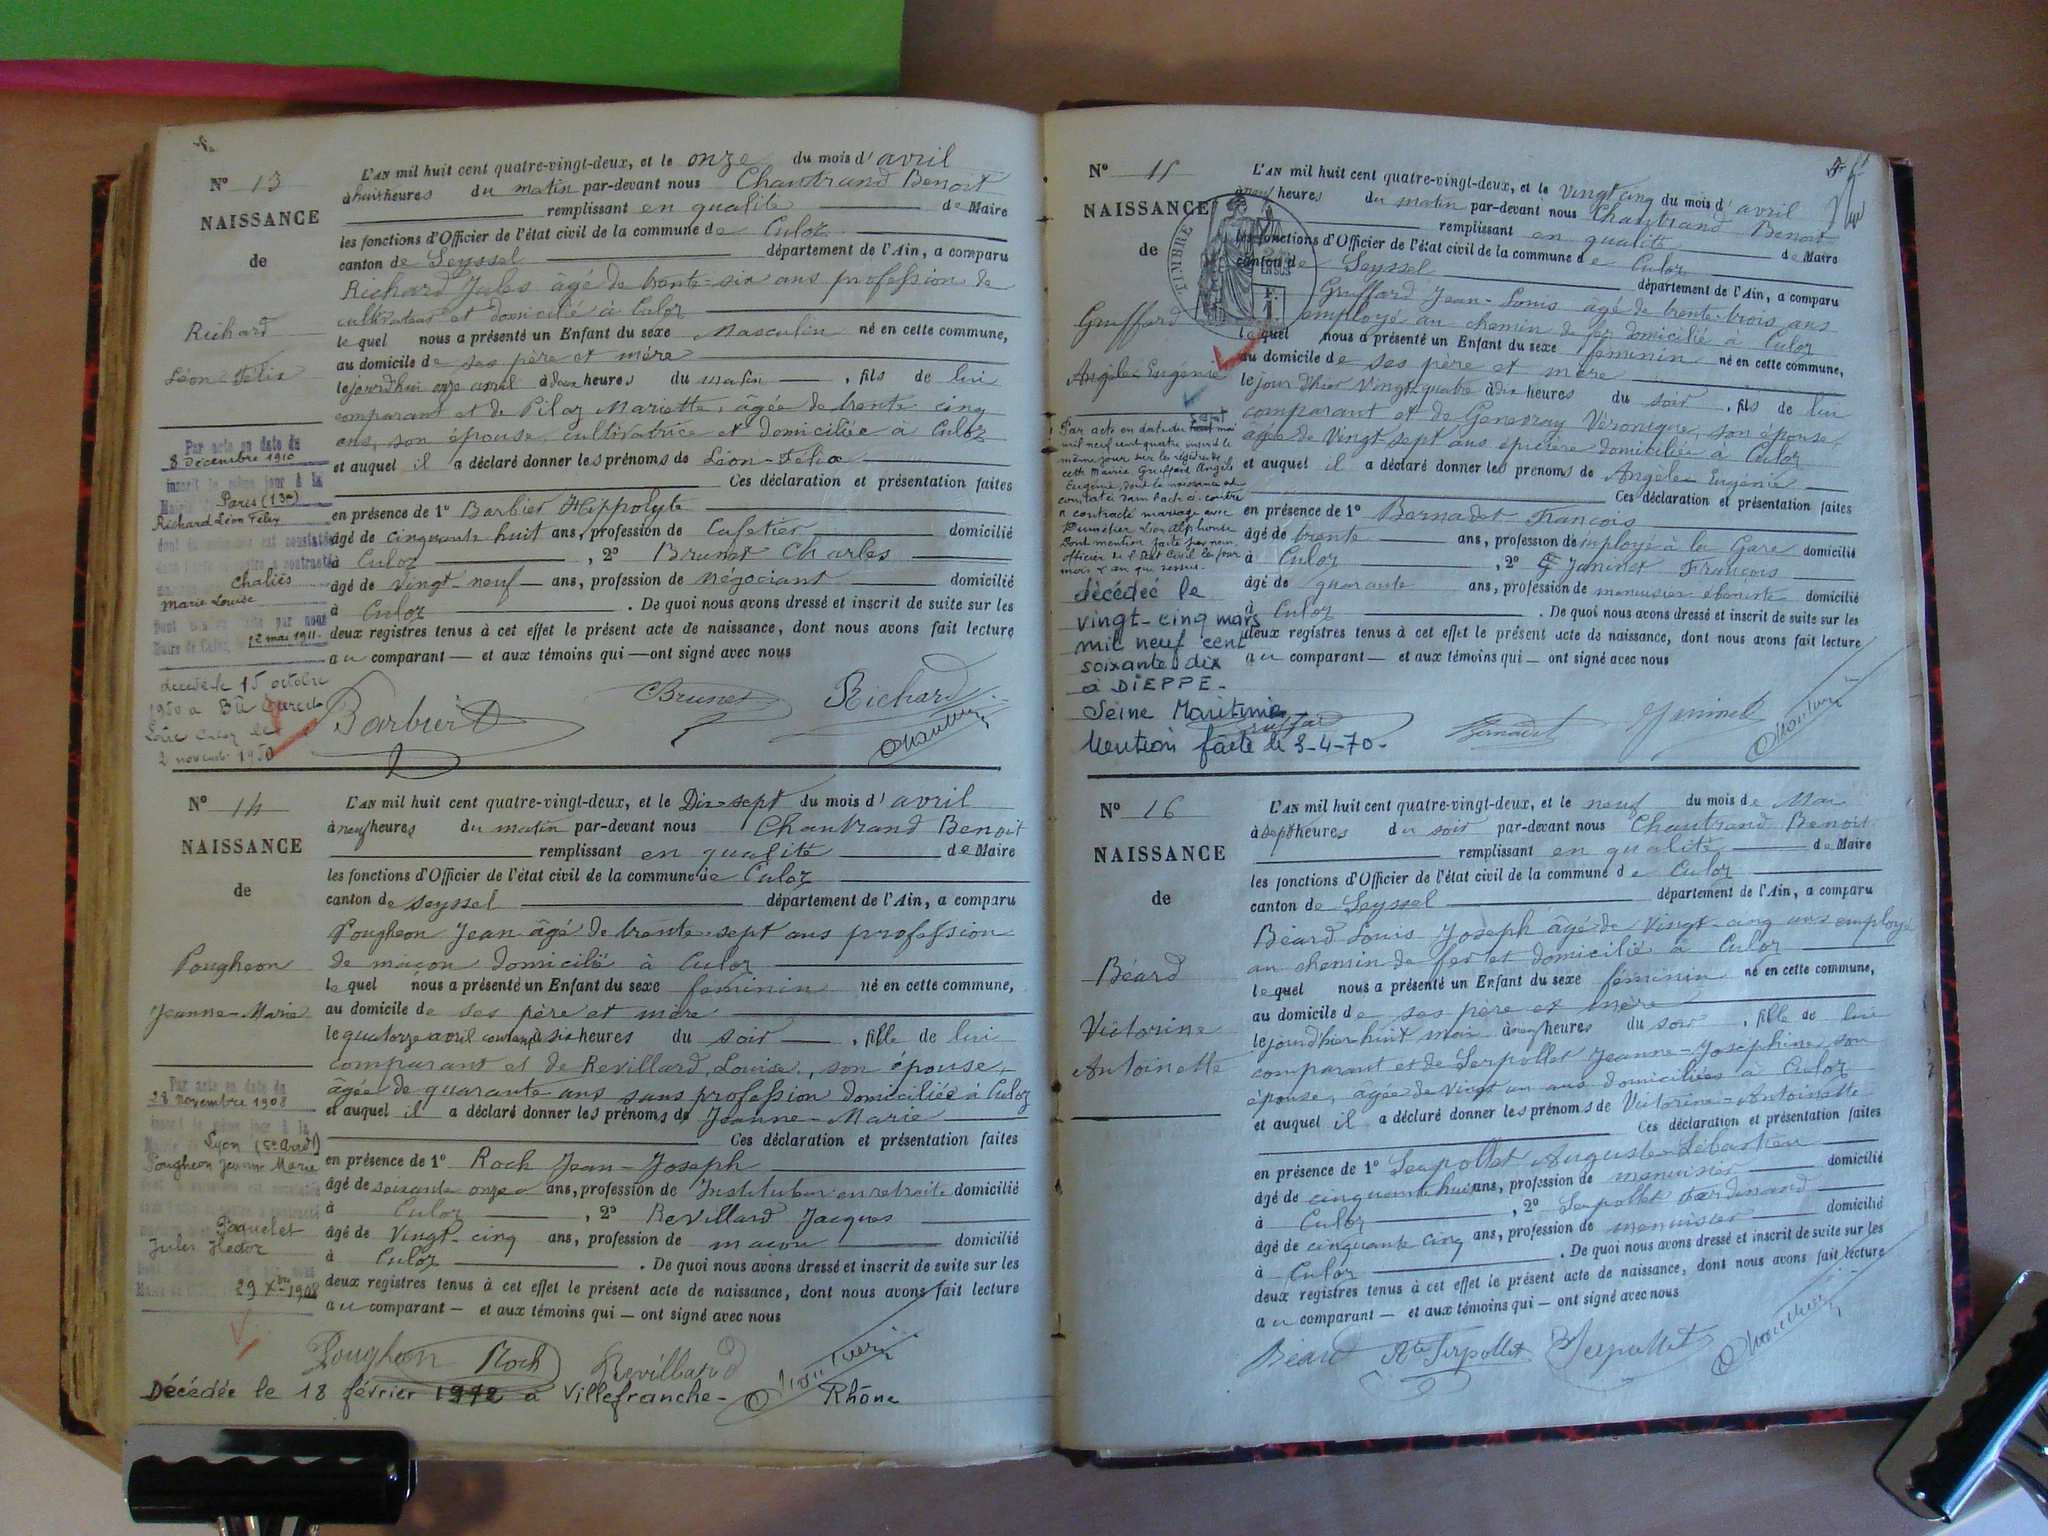 N° 13
NAISSANCE
de
Richard
Léon-Félix
Par acte en date du
8 Décembre 1910
inscrit le même jour à la
Mairie Paris (13e)
Richard Léon Félix
dont la naissance est constatée
Chaliès
Marie Louise
Maire de Culoz, le 12 mai 1911.
décédé le 15 octobre
1950 à
2 novemb. 1950
L'AN mil huit cent quatre-vingt-deux, et le onze du mois d'avril
à huit heures du matin par-devant nous Chantrand Benoit
remplissant en qualité de Maire
les fonctions d'Officier de l'état civil de la commune de Culoz
canton de Seyssel département de l'Ain, a comparu
Richard Jules âgé de trente-six ans profession de
cultivateur et domicilié à Culoz
lequel nous a présenté un Enfant du sexe Masculin né en cette commune,
au domicile de ses père et mère
le jourdhui onze avril à deux heures du matin, fils de lui
comparant et de Pilaz Mariette, âgée de trente cinq
ans, son épouse, cultivatrice et domiciliée à Culoz
et auquel il a déclaré donner les prénoms de Léon-Félix
Ces déclaration et présentation faites
en présence de 1° Barbier Hippolyte
âgé de cinquante huit ans, profession de Cafetier domicilié
à Culoz, 2° Brunet Charles
âgé de vingt-neuf ans, profession de négociant domicilié
à Culoz. De quoi nous avons dressé et inscrit de suite sur les
deux registres tenus à cet effet le présent acte de naissance, dont nous avons fait lecture
au comparant — et aux témoins qui — ont signé avec nous
Barbier CBrunet Richard
N° 14
NAISSANCE
de
Pougheon
Jeanne-Marie
Par acte en date du
28 Novembre 1908
inscrit le même jour à la
Mairie de Lyon (5e Arrdt)
Pougheon Jeanne Marie
Paquelet
Jules Hector
29 Xbre 1908
L'AN mil huit cent quatre-vingt-deux, et le Dix-sept du mois d'avril
à neuf heures du matin par-devant nous Chantrand Benoit
remplissant en qualité de Maire
les fonctions d'Officier de l'état civil de la commune de Culoz
canton de Seyssel département de l'Ain, a comparu
Pougheon Jean âgé de trente-sept ans profession
de maçon domicilié à Culoz
lequel nous a présenté un Enfant du sexe féminin né en cette commune,
au domicile de ses père et mère
le quatorze avril courant à six heures du soir, fille de lui
comparant et de Revillard, Louise, son épouse,
âgée de quarante ans sans profession domiciliée à Culoz
et auquel il a déclaré donner les prénoms de Jeanne-Marie
Ces déclaration et présentation faites
en présence de 1° Roch Jean-Joseph
âgé de soixante onze ans, profession de Instituteur en retraite domicilié
à Culoz, 2° Revillard Jacques
âgé de Vingt-cinq ans, profession de maçon domicilié
à Culoz. De quoi nous avons dressé et inscrit de suite sur les
deux registres tenus à cet effet le présent acte de naissance, dont nous avons fait lecture
au comparant — et aux témoins qui — ont signé avec nous
Pougheon Roch Revillard
Décédée le 18 février 1972 à Villefranche- Rhône
N° 15
NAISSANCE
de
Gruffard
Angèle-Eugenie
Par acte en date du sept mai
mil neuf cent quatre inscrit le
même jour sur les registres de
cette Mairie, Gruffard Angèle
Eugénie, dont la naissance est
constatée dans l'acte ci-contre
a contracté mariage avec
Dumétier Léon Alphonse
Dont mention faite par nous
officier de l'Etat Civil les jour
mois & an que dessus.
décédée le
vingt-cinq mars
mil neuf cent
soixante dix
à DIEPPE-
Seine Maritime
Mention faite le 3-4-70-
TIMBRE
L'AN mil huit cent quatre-vingt-deux, et le Vingt cinq du mois d'avril
à neuf heures du matin par-devant nous Chantrand Benoit
remplissant en qualité de Maire
les fonctions d'Officier de l'état civil de la commune de Culoz
canton de Seyssel département de l'Ain, a comparu
Gruffard Jean-Louis âgé de trente-trois ans
employé au chemin de fer domicilié à Culoz
lequel nous a présenté un Enfant du sexe féminin né en cette commune,
au domicile de ses père et mère
le jour dhier vingt-quatre à dix heures du soir, fils de lui
comparant et de Genevray Véronique, son épouse,
âgée de Vingt-sept ans épicière domiciliée à Culoz
et auquel il a déclaré donner les prénoms de Angèle-Eugenie
Ces déclaration et présentation faites
en présence de 1° Bernadet François
âgé de trente ans, profession de employé à la Gare domicilié
à Culoz, 2° Janinet François
âgé de quarante ans, profession de menuisier ébéniste domicilié
à Culoz. De quoi nous avons dressé et inscrit de suite sur les
deux registres tenus à cet effet le présent acte de naissance, dont nous avons fait lecture
au comparant — et aux témoins qui — ont signé avec nous
Gruffard Bernadet
N° 16
NAISSANCE
de
Béard
Victorine
Antoinette
L'AN mil huit cent quatre-vingt-deux, et le neuf du mois de Mai
à sept heures du soir par-devant nous Chantrand Benoit
remplissant en qualité de Maire
les fonctions d'Officier de l'état civil de la commune de Culoz
canton de Seyssel département de l'Ain, a comparu
Béard Louis Joseph âgé de Vingt-cinq ans employé
au chemin de fer et domicilié à Culoz
lequel nous a présenté un Enfant du sexe féminin né en cette commune,
au domicile de ses père et mère
le jourdhier huit mai à neuf heures du soir, fille de lui
comparant et de Serpollet Jeanne-Joséphine son
épouse, âgée de vingt un ans domiciliées à Culoz
et auquel il a déclaré donner les prénoms de Victorine-Antoinette
Ces déclaration et présentation faites
en présence de 1° Serpollet Auguste-Sébastien
âgé de cinquante huit ans, profession de menuisier domicilié
à Culoz, 2° Serpollet Ferdinand
âgé de cinquante cinq ans, profession de menuisier domicilié
à Culoz. De quoi nous avons dressé et inscrit de suite sur les
deux registres tenus à cet effet le présent acte de naissance, dont nous avons fait lecture
au comparant — et aux témoins qui — ont signé avec nous
Béard Ate Serpollet Serpollet